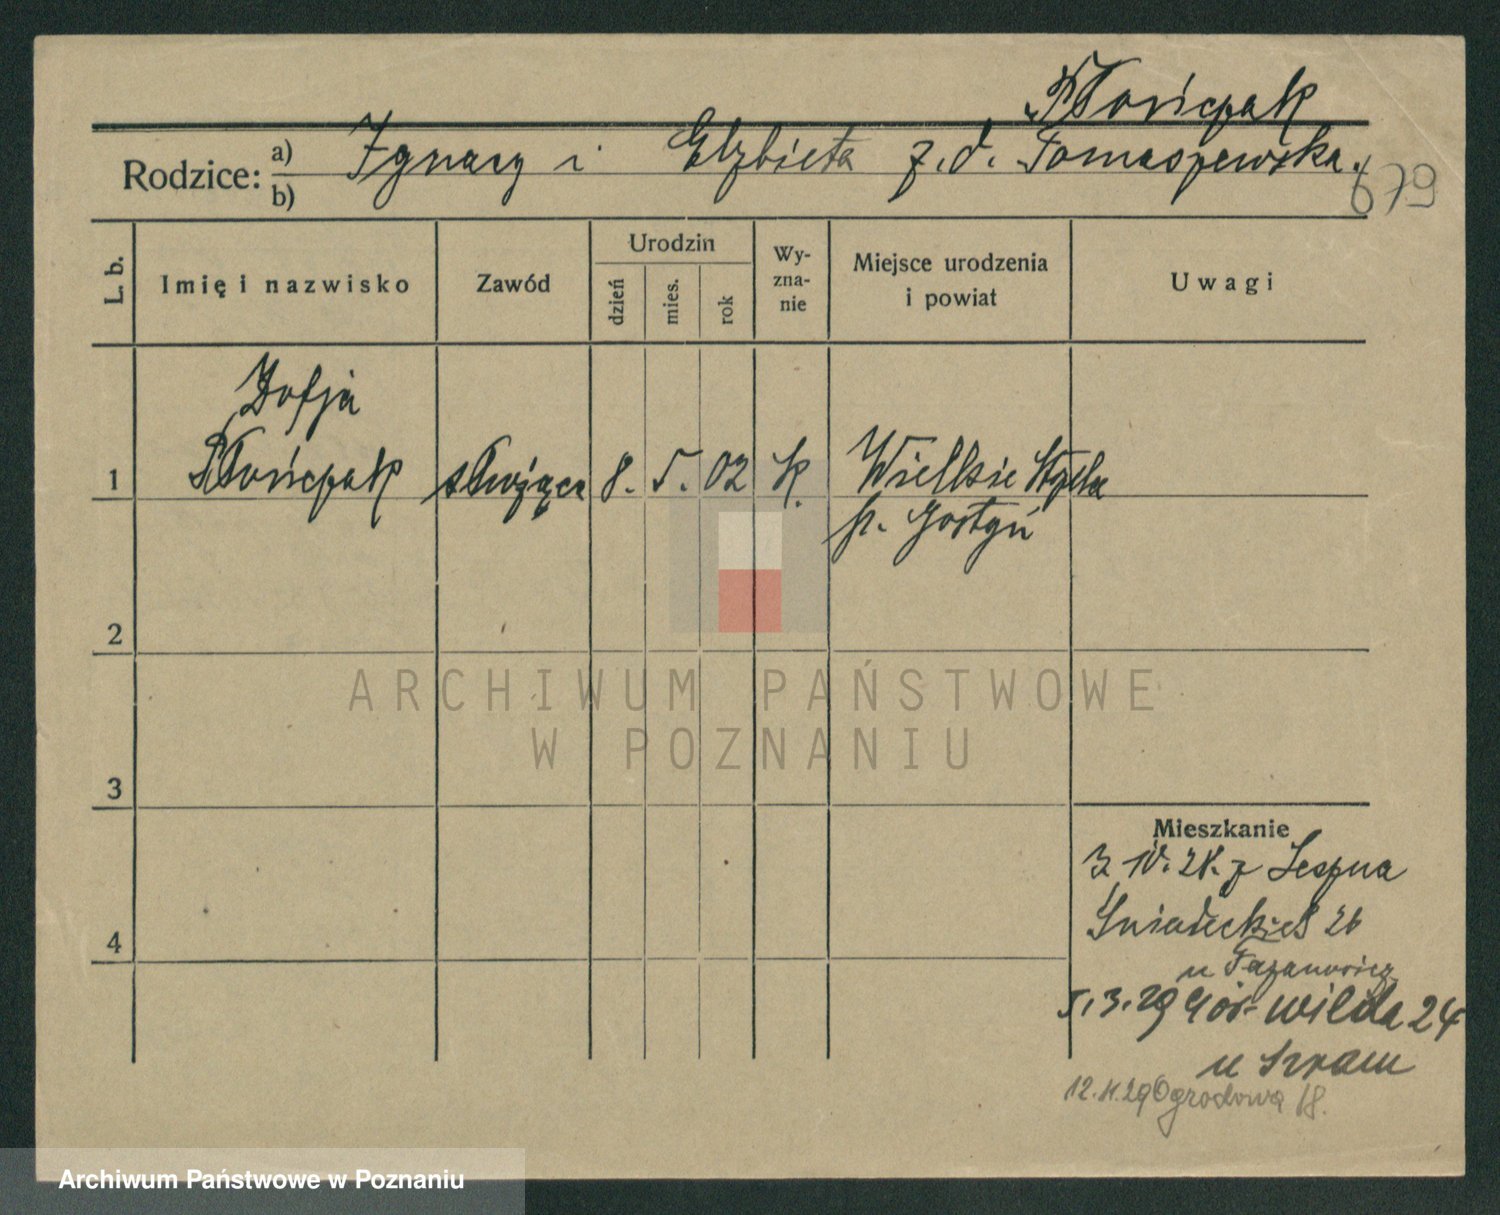 Płończak
Rodzice: a) Ignacy i Elżbieta z. d. Tomaszewska.
b)
679
L. b.
Imię i nazwisko
Zawód
Urodzin
dzień
mies.
rok
Wy-
zna-
nie
Miejsce urodzenia
i powiat
Uwagi
Zofja
1 Płończak służąca 8. 5. 02 k. Wielkie
p. Gostyń
2
3
4
ARCHIWUM PAŃSTWOWE
W POZNANIU
Mieszkanie
3. IV. 28. z Leszna
Śniadeckich 26
u
5.3.29 Gór. Wilda 24
u Szram
12.11.29 Ogrodowa 18.
Archiwum Państwowe w Poznaniu